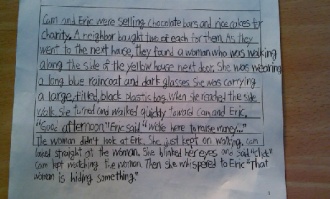 Cam and Eric were selling chocolate bars and rice cakes for
charity. A neighbor bought two of each for them. As they
went to the next house, they found a woman who was walking
along the side of the yellow house next door. She was wearing
a long blue raincoat and dark glasses. She was carrying
a large, filled, black plastic bag. When she reached the side
walk. She turned and walked quickly toward Cam and Eric.
"Good afternoon" Eric said "We're here to raise money..."
The woman didn't look at Eric. She just kept on walking. Cam
looked straight at the woman. She blinked her eyes and said "Click"
Cam kept watching the woman. Then she whispered to Eric "That
woman is hiding something."